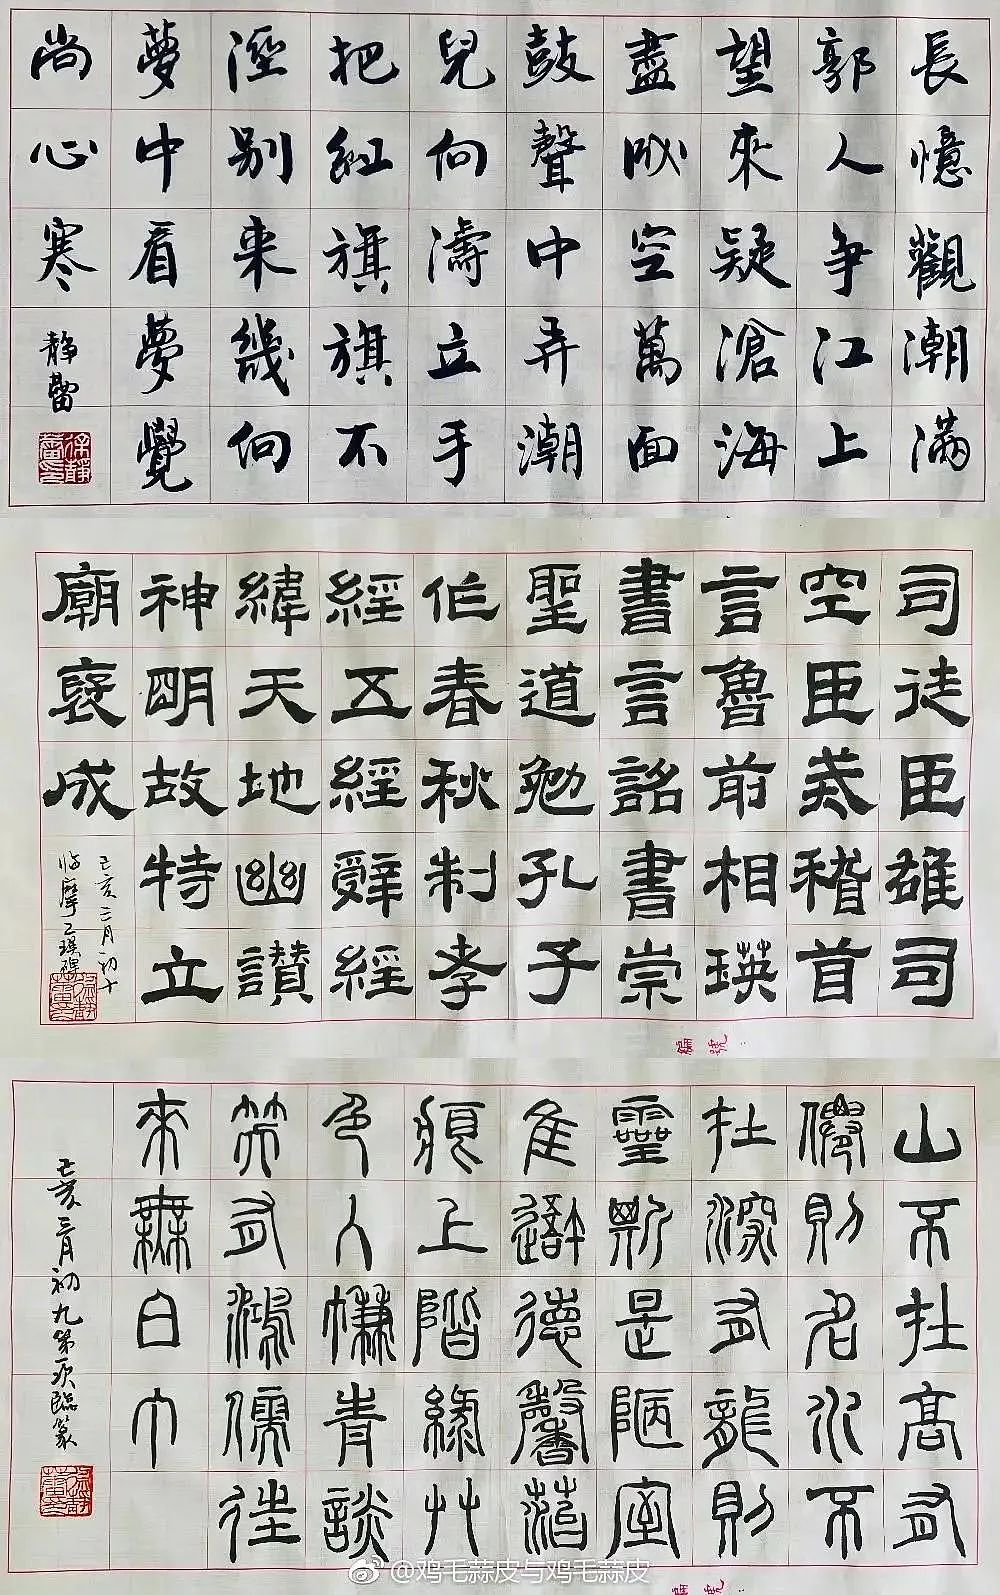 長憶觀潮滿
郭人爭江上
望來疑滄海
盡成空萬面
鼓聲中弄潮
兒向濤立手
把紅旗旗不
溼别来幾向
夢中看夢覺
尚心寒
静蕾
徐静蕾印
司徒臣雄司
空臣戒稽首
言魯前相瑛
書言詔書崇
聖道勉孔子
作春秋制孝
經五經辭經
緯天地幽讚
神明故特立
廟褒成
己亥三月初十
临摩乙瑛碑
山不在高有
僊則名水不
在深有龍則
靈斯是陋室
隹吾德馨菭
痕上階綠艸
色入簾青談
笑有鴻儒往
來無白丁
己亥三月初九第一次臨篆
@鸡毛蒜皮与鸡毛蒜皮